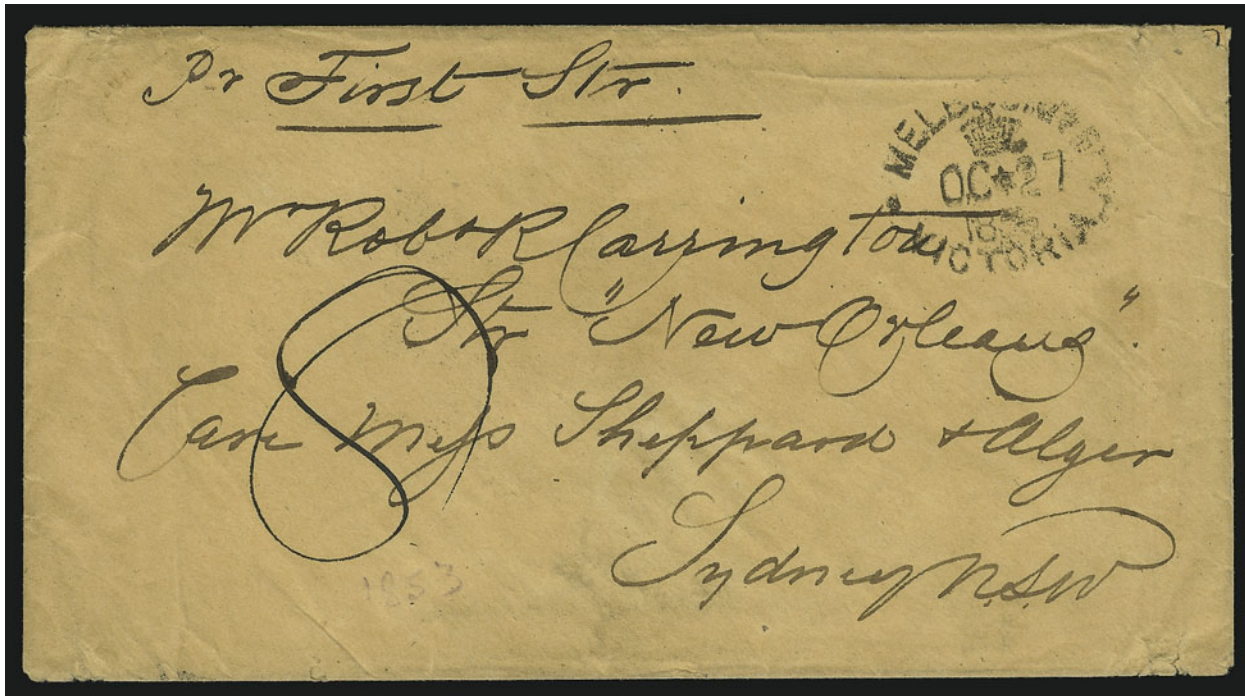 Pr First Str.
MELBOURNE
OC 27
VICTORIA
Mr Robt R Carrington
Str "New Orleans".
Care Mess Sheppard & Alger
8
Sydney N.S.W
1853